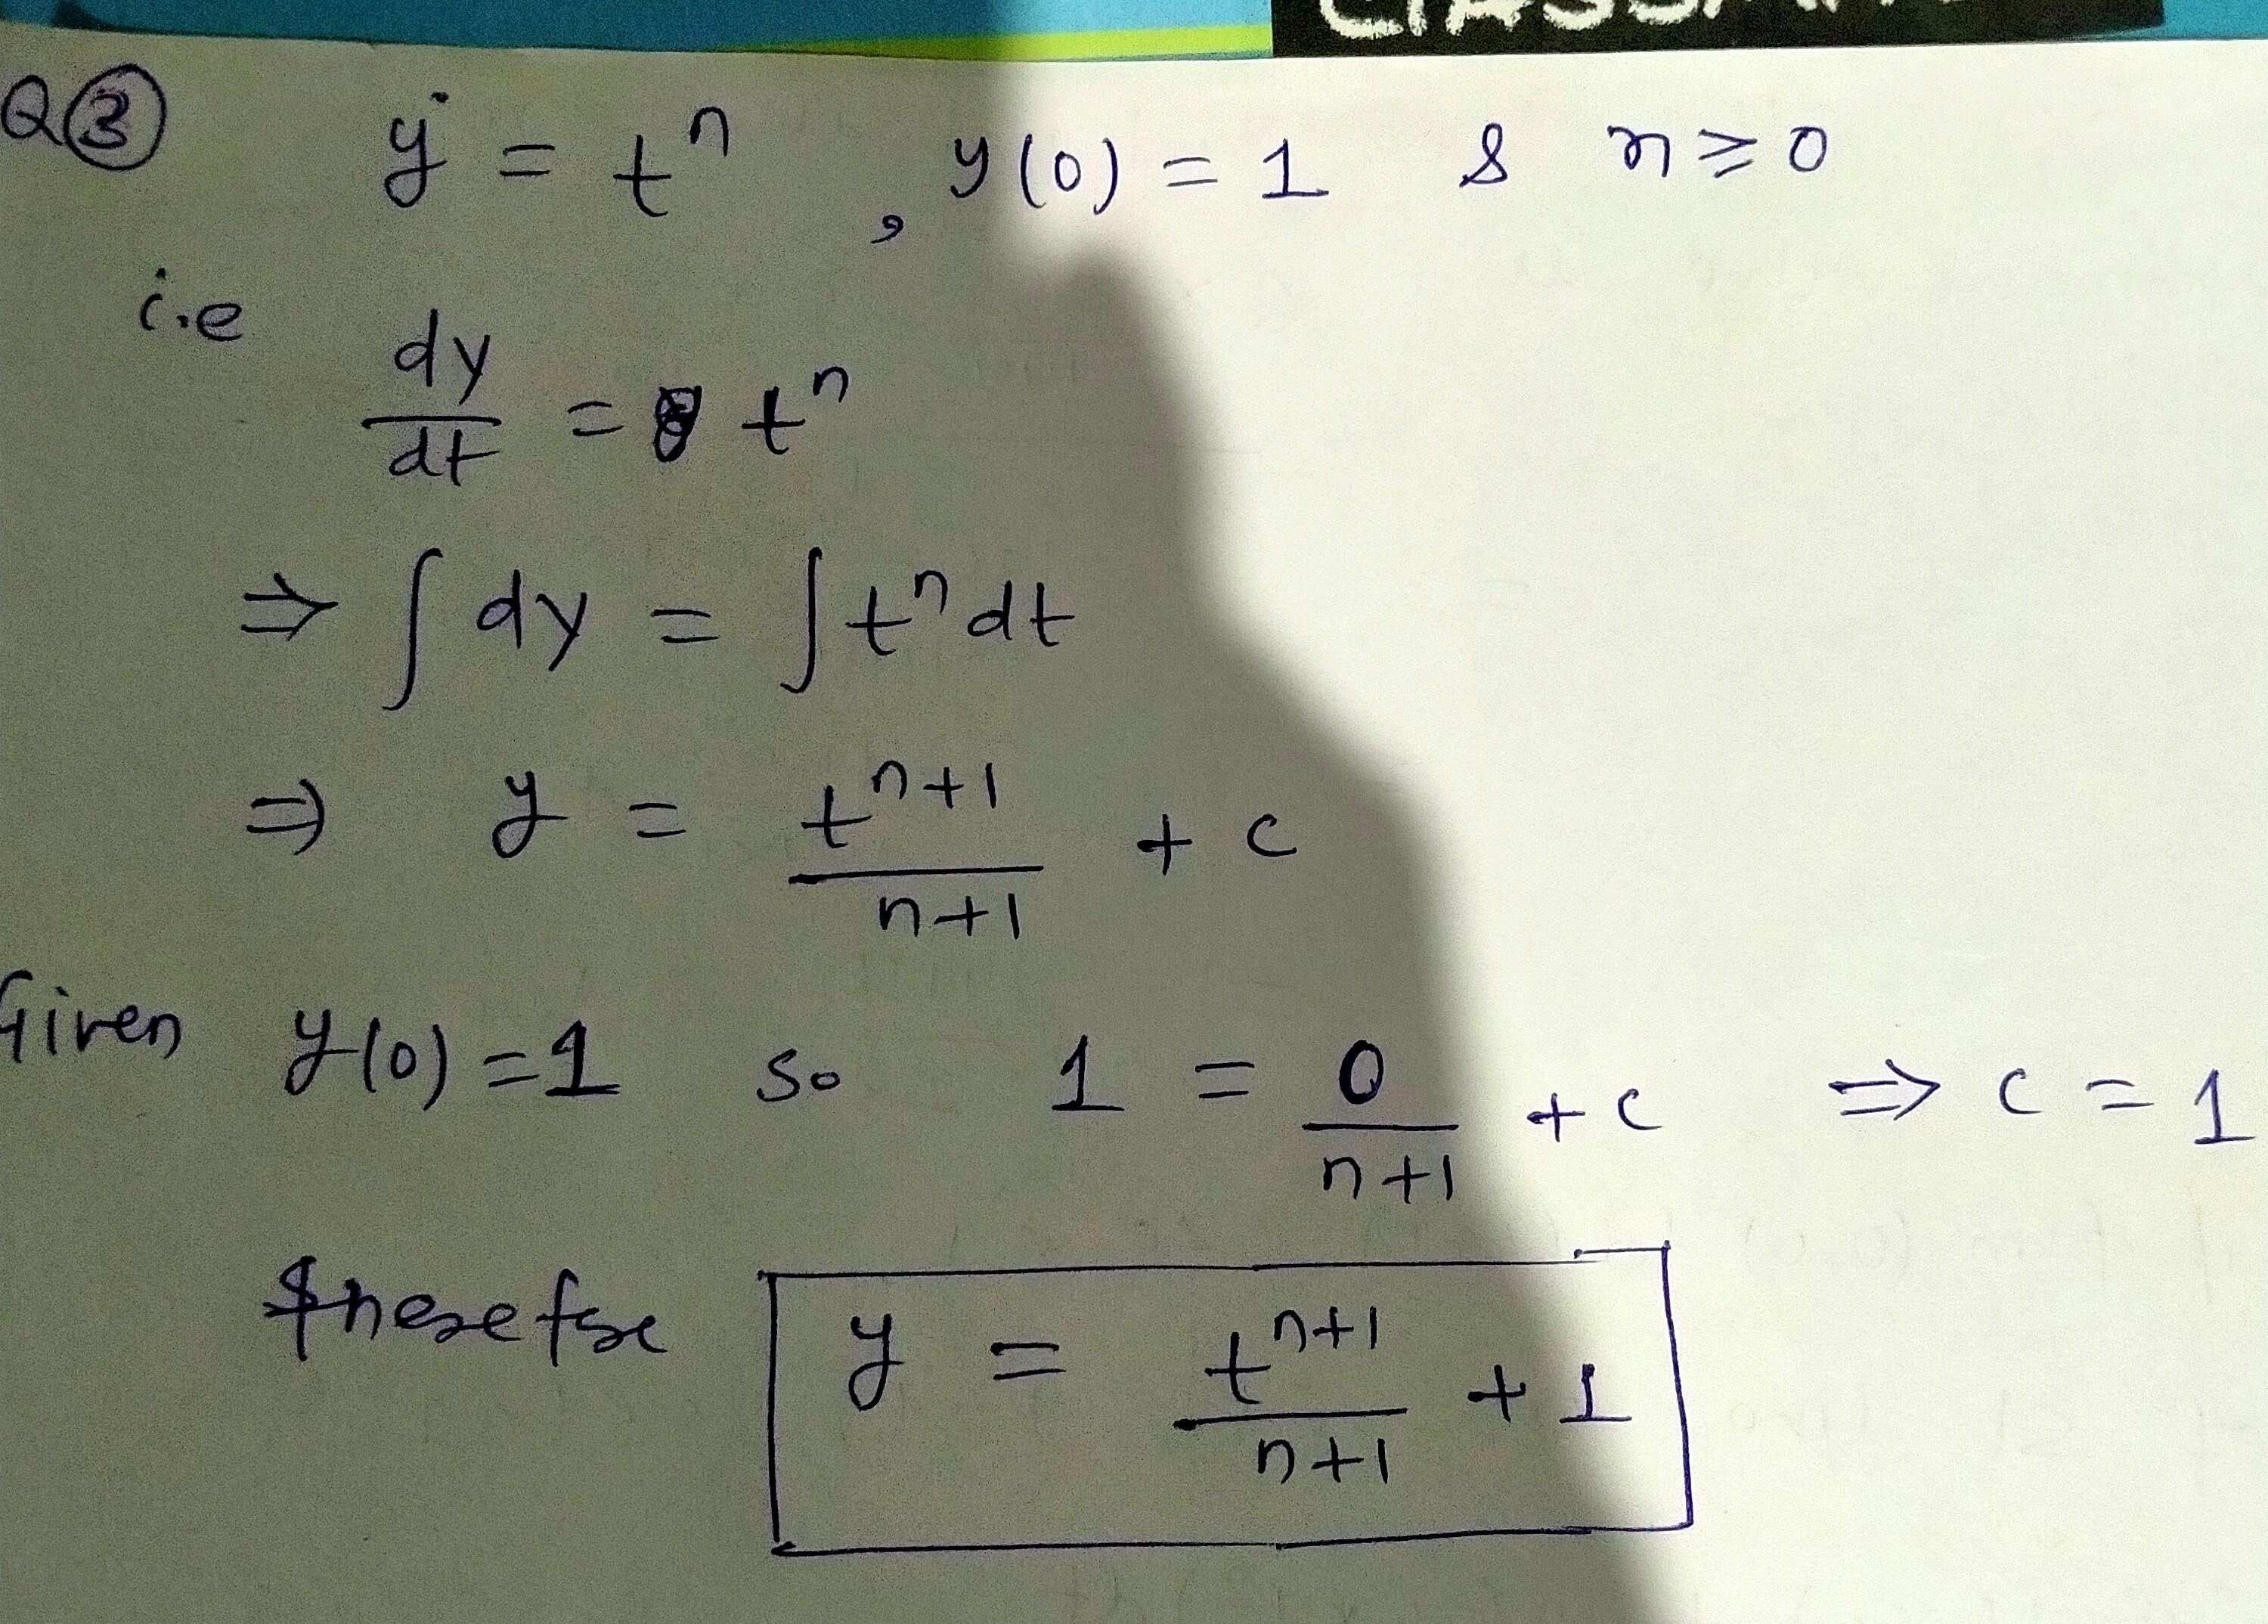 Q③ ẏ = tⁿ , y(0) = 1 & n ≥ 0
i.e dy/dt = tⁿ
⇒ ∫ dy = ∫ tⁿ dt
⇒ y = tⁿ⁺¹/n+1 + c
Given y(0) = 1 so 1 = 0/n+1 + c ⇒ c = 1
therefore y = tⁿ⁺¹/n+1 + 1